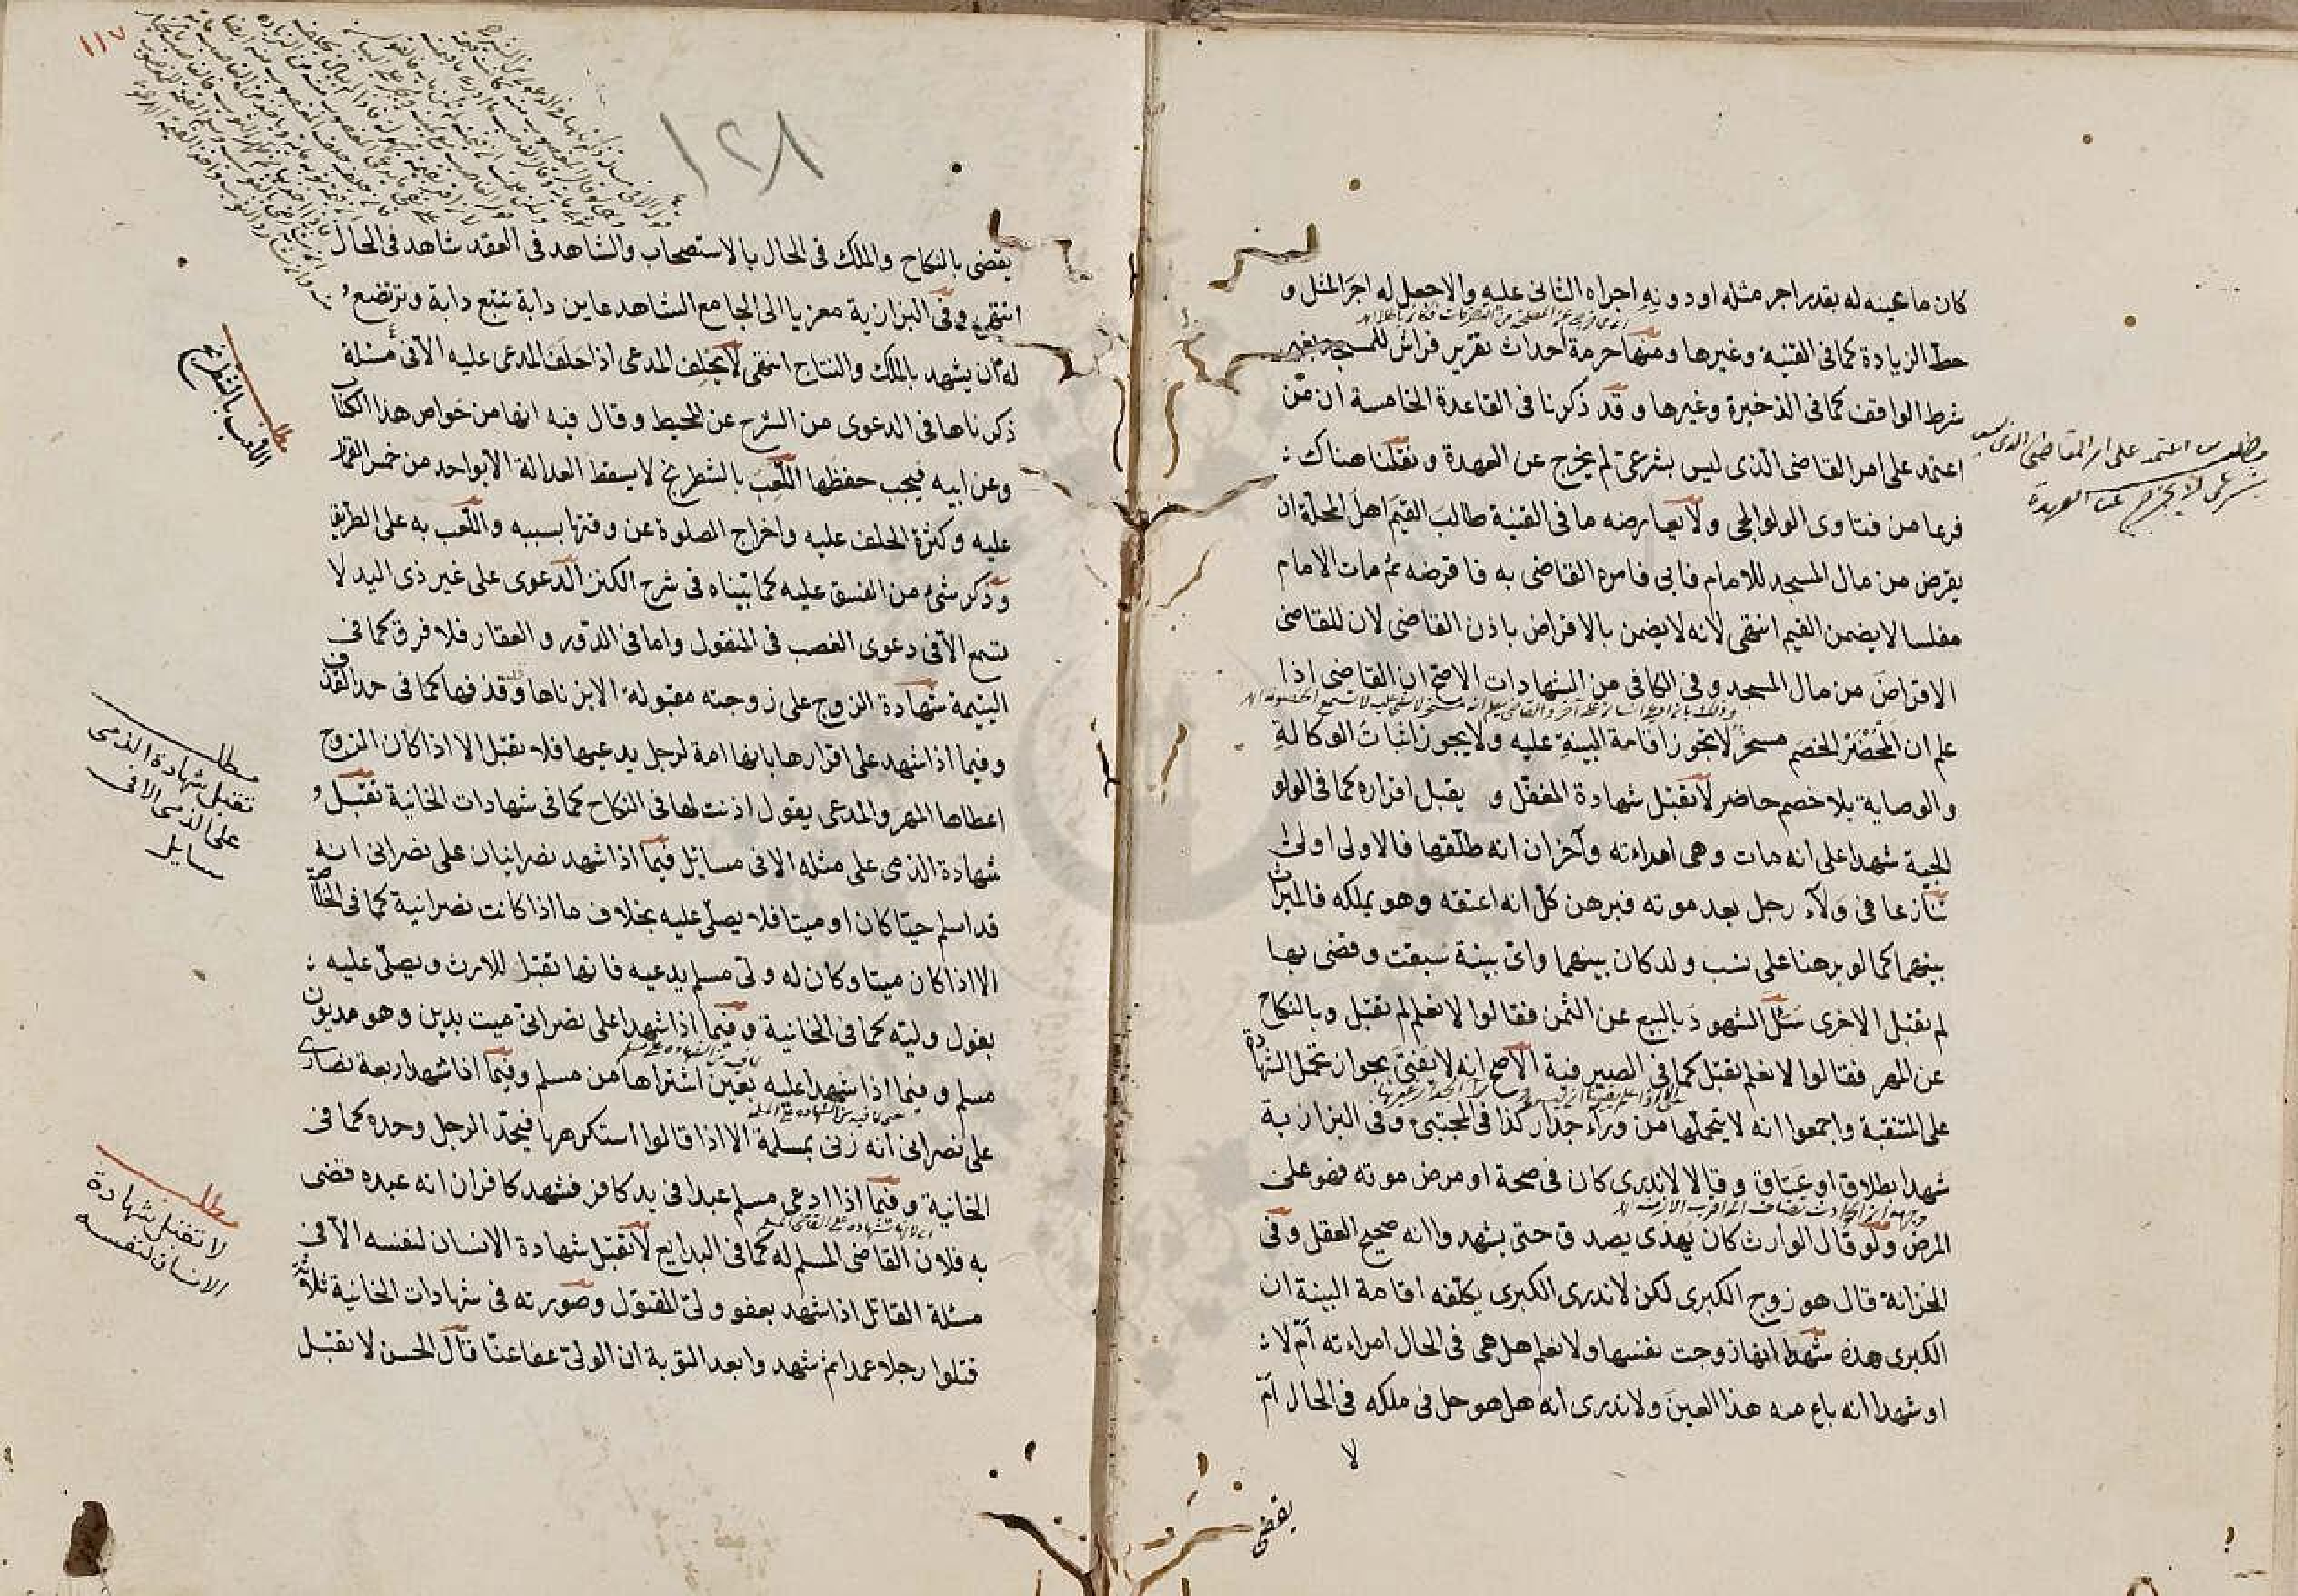 كان ما عينه له بقدر اجر مثله او دونه اجراه الثانى عليه والا جعل له اجر المثل و
حط الزيادة كما فى القنية وغيرها ومنها حرمة احداث تقرير فراش للمسجد بغير
شرط الواقف كما فى الذخيرة وغيرها وقد ذكرنا فى القاعدة الخامسة ان من
اعتمد على امر القاضى الذى ليس بشرعى لم يخرج عن العهدة ونقلنا هناك
فرعا من فتاوى الولوالجى ولا يعارضه ما فى القنية طالب القيم اهل المحلة ان
يقرض من مال المسجد للامام فابى فامره القاضى به فاقرضه ثم مات الامام
مفلسا لا يضمن القيم انتهى لانه لا يضمن بالاقراض باذن القاضى لان للقاضى
الاقراض من مال المسجد وفى الكافى من الشهادات الاصح ان القاضى اذا
علم ان المحضر الخصم مسخر لا تجوز اقامة البينة عليه ولا يجوز اثبات الوكالة
والوصاية بلا خصم حاضر لا تقبل شهادة المغفل و يقبل اقراره كما فى الولو
الجية شهدا على انه مات وهى امراءته وآخران انه طلقها فالاولى اولى
تنازعا فى ولآء رجل بعد موته فبرهن كل انه اعتقه وهو يملكه فالميراث
بينهما كما لو برهنا على نسب ولد كان بينهما واى بينة سبقت وقضى بها
لم تقبل الاخرى سئل الشهود بالبيع عن الثمن فقالوا لا نعلم لم تقبل وبالنكاح
عن المهر فقالوا لا نعلم تقبل كما فى الصيرفية الاصح انه لا يفتى بجواز تحمل الشهادة
على المتنقبة واجمعوا انه لا يتحملها من ورآء جدار كذا فى المجتبى وفى البزازية
شهدا بطلاق او عتاق وقالا لا ندرى كان فى صحة او مرض موته فهو على
المرض ولو قال الوارث كان يهذى يصدق حتى يشهدوا انه صحيح العقل وفى
الخزانة قال هو زوج الكبرى لكن لا ندرى الكبرى يكلفه اقامة البينة ان
الكبرى هذه شهدا انها زوجت نفسها ولا نعلم هل هى فى الحال امراءته ام لا
او شهدا انه باع منه هذا العين ولا ندرى انه هل هو حل فى ملكه فى الحال ام
لا
يقضى
اعتمد على امر القاضى الذى ليس
بشرعى لا يخرج عن العهدة
١١٧
١٢٨
يقضى بالنكاح والملك فى الحال بالاستصحاب والشاهد فى العقد شاهد فى الحال
انتهى وفى البزازية معزيا الى الجامع الشاهد عاين دابة تتبع دابة وترتضع
له ان يشهد بالملك والنتاج انتهى لا يحلف المدعى اذا حلف المدعى عليه الا فى مسئلة
ذكرناها فى الدعوى من الشرح عن المحيط وقال فيه انها من خواص هذا الكتاب
وعن ابيه فيجب حفظها اللعب بالشطرنج لا يسقط العدالة الا بواحد من خمس القمار
عليه وكثرة الحلف عليه واخراج الصلوة عن وقتها بسببه واللعب به على الطريق
وذكر شئ من الفسق عليه كما بيناه فى شرح الكنز الدعوى على غير ذى اليد لا
تسمع الا فى دعوى الغصب فى المنقول واما فى الدور والعقار فلا فرق كما فى
اليتيمة شهادة الزوج على زوجته مقبولة الا بزناها وقذفها كما فى حد القذف
وفيما اذا شهد على اقرارها بانها امة لرجل يدعيها فلا تقبل الا اذا كان الزوج
اعطاها المهر والمدعى يقول اذنت لها فى النكاح كما فى شهادات الخانية تقبل
شهادة الذمى على مثله الا فى مسائل فيما اذا شهد نصرانيان على نصرانى انه
قد اسلم حيا كان او ميتا فلا يصلى عليه بخلاف ما اذا كانت نصرانية كما فى الخلاصة
الا اذا كان ميتا وكان له ولى مسلم يدعيه فانها تقبل للارث ويصلى عليه
بقول وليه كما فى الخانية وفيما اذا شهدا على نصرانى ميت بدين وهو مديون
مسلم وفيما اذا شهدا عليه بعين اشتراها من مسلم وفيما اذا شهد اربعة نصارى
على نصرانى انه زنى بمسلمة الا اذا قالوا استكرهها فيحد الرجل وحده كما فى
الخانية وفيما اذا ادعى مسلم عبدا فى يد كافر فشهد كافران انه عبده قضى
به فلان القاضى المسلم له كما فى البدايع لا تقبل شهادة الانسان لنفسه الا فى
مسئلة القاتل اذا شهد بعفو ولى المقتول وصورته فى شهادات الخانية ثلاثة
قتلوا رجلا عمدا ثم شهدوا بعد التوبة ان الولى عفا عنا قال الحسن لا تقبل
مطلب
اللعب بالشطرنج
مطلب
تقبل شهادة الذمى
على الذمى الا فى
مسايل
مطلب
لا تقبل شهادة
الانسان لنفسه